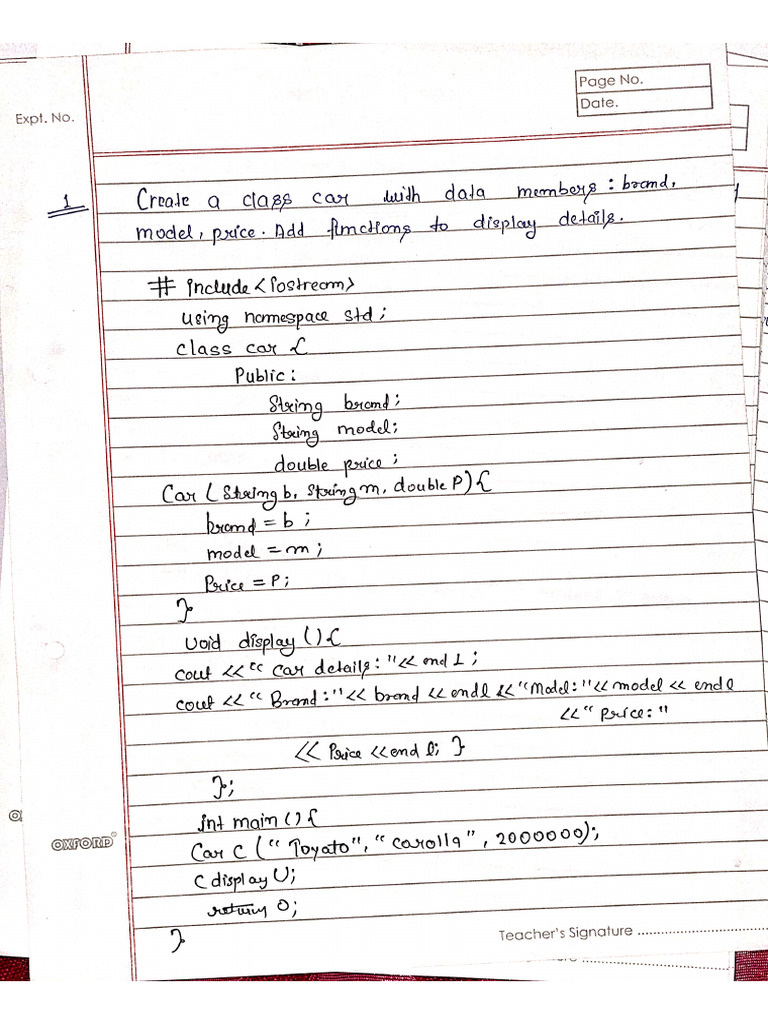 Page No.
Date.
Expt. No.
1 Create a class car with data members: brand,
model, price. Add functions to display details.
# include <iostream>
using namespace std;
class car {
Public:
String brand;
String model;
double price;
Car (String b, String m, double P) {
brand = b;
model = m;
Price = P;
}
void display () {
cout << "car details:" << endl;
cout << "Brand:" << brand << endl << "Model:" << model << endl
<< "price:"
<< Price << endl; }
};
int main () {
Car C ("Toyato", "Carolla", 2000000);
C display ();
return 0;
}
OXFORD
Teacher's Signature